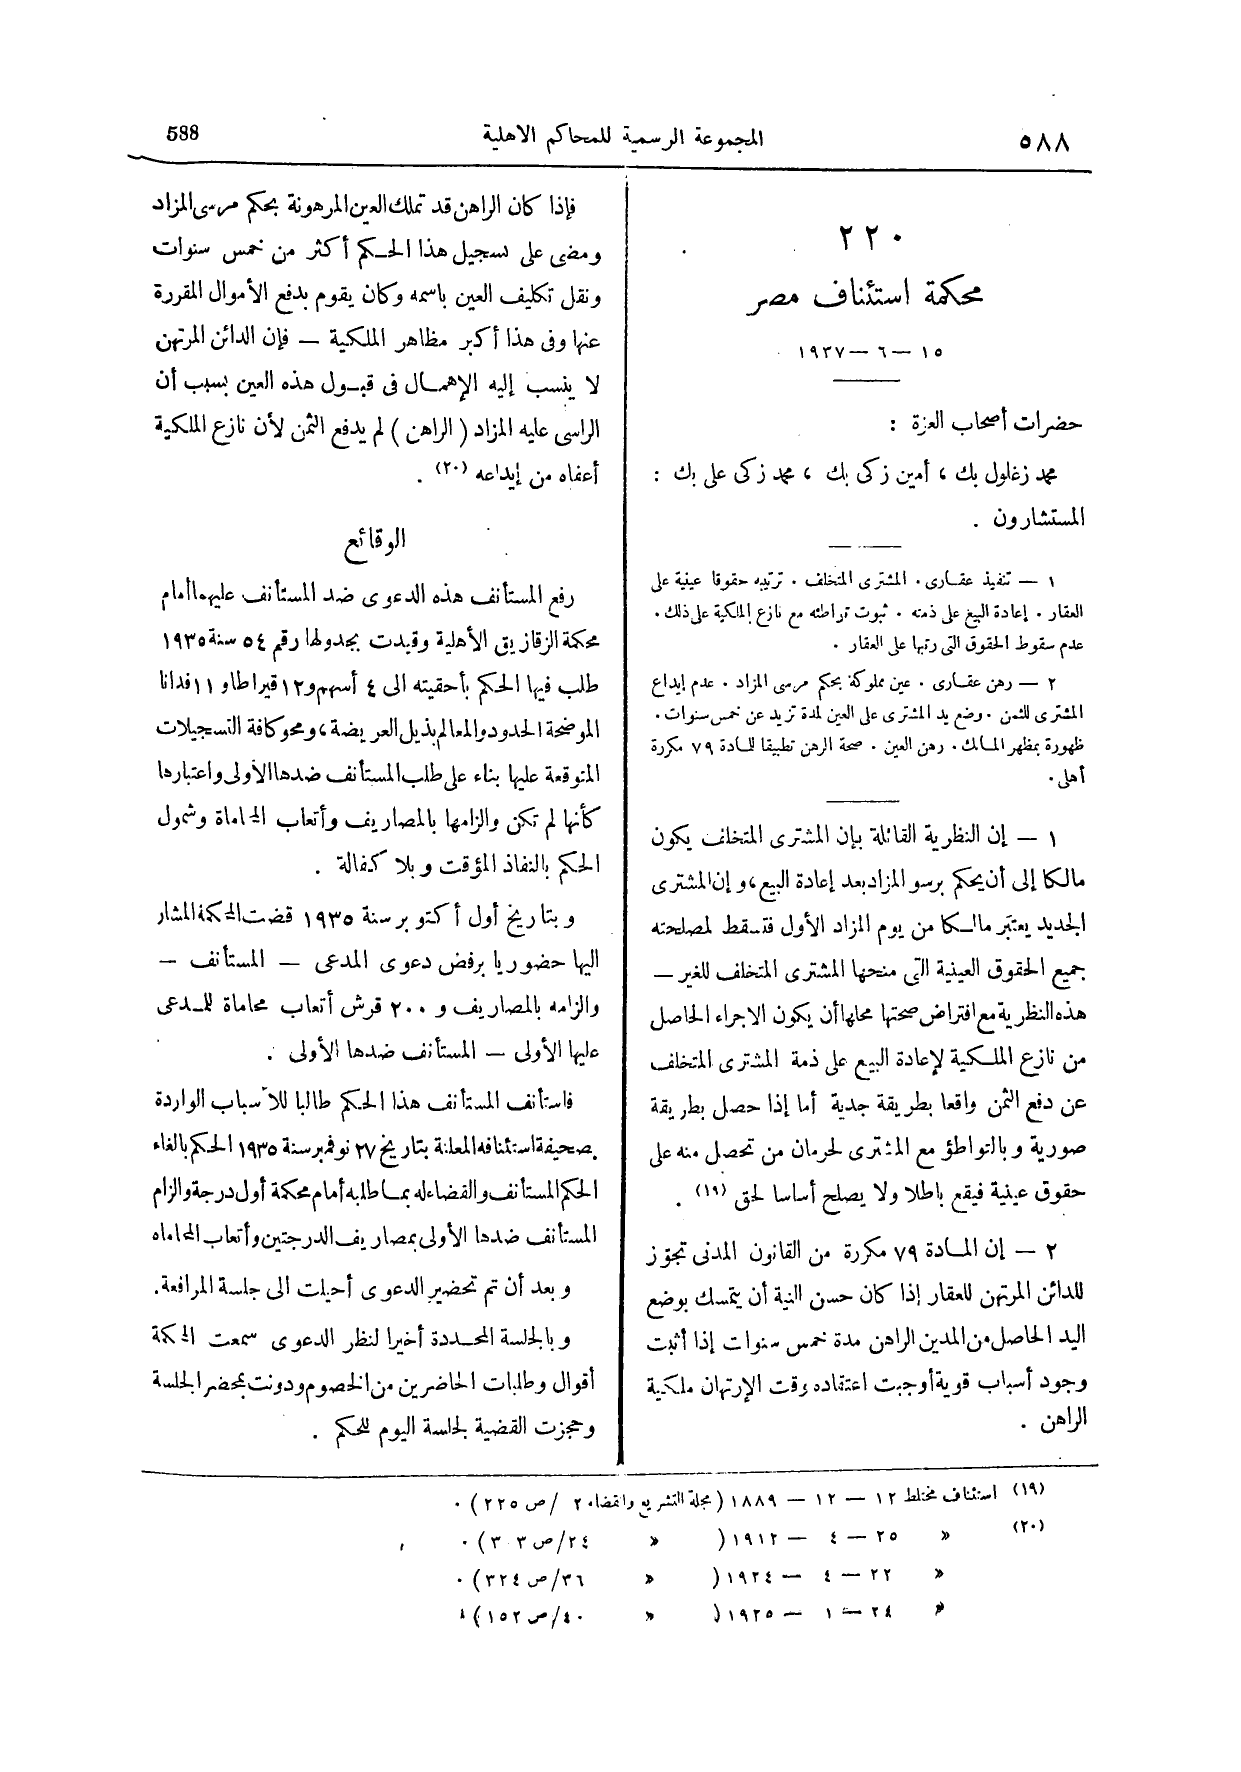 ٥٨٨
المجموعة الرسمية للمحاكم الاهلية
588
٢٢٠
محكمة استئناف مصر
١٥ — ٦ — ١٩٣٧
حضرات أصحاب العزة :
محمد زغلول بك ، أمين زكى بك ، محمد زكى على بك :
المستشارون .
١ — تنفيذ عقارى . المشترى المتخلف . ترتيبه حقوقا عينية على
العقار . إعادة البيع على ذمته . ثبوت تراطئه مع نازع الملكية على ذلك .
عدم سقوط الحقوق التى رتبها على العقار .
٢ — رهن عقارى . عين مملوكة بحكم مرسى المزاد . عدم إيداع
المشترى للثمن . وضع يد المشترى على العين لمدة تزيد عن خمس سنوات .
ظهورة بمظهر المالك . رهن العين . صحة الرهن تطبيقا للمادة ٧٩ مكررة
أهلى .
١ — إن النظرية القائلة بإن المشترى المتخلف يكون
مالكا إلى أن يحكم برسو المزاد بعد إعادة البيع ، و إن المشترى
الجديد يعتبر مالكا من يوم المزاد الأول فتسقط لمصلحته
جميع الحقوق العينية التى منحها المشترى المتخلف للغير —
هذه النظرية مع افتراض صحتها محلها أن يكون الاجراء الحاصل
من نازع الملكية لإعادة البيع على ذمة المشترى المتخلف
عن دفع الثمن واقعا بطريقة جدية أما إذا حصل بطريقة
صورية و بالتواطؤ مع المشترى لحرمان من تحصل منه على
حقوق عينية فيقع باطلا ولا يصلح أساسا لحق (١٩) .
٢ — إن المادة ٧٩ مكررة من القانون المدنى تجوّز
للدائن المرتهن للعقار إذا كان حسن النية أن يتمسك بوضع
اليد الحاصل من المدين الراهن مدة خمس سنوات إذا أثبت
وجود أسباب قوية أوجبت اعتقاده وقت الإرتهان ملكية
الراهن .
فإذا كان الراهن قد تملك العين المرهونة بحكم مرسى المزاد
ومضى على تسجيل هذا الحكم أكثر من خمس سنوات
ونقل تكليف العين باسمه وكان يقوم بدفع الأموال المقررة
عنها وفى هذا أكبر مظاهر الملكية — فإن الدائن المرتهن
لا ينسب إليه الإهمال فى قبول هذه العين بسبب أن
الراسى عليه المزاد ( الراهن ) لم يدفع الثمن لأن نازع الملكية
أعفاه من إيداعه (٢٠) .
الوقائع
رفع المستأنف هذه الدعوى ضد المستأنف عليهما أمام
محكمة الزقازيق الأهلية وقيدت بجدولها رقم ٥٤ سنة ١٩٣٥
طلب فيها الحكم بأحقيته الى ٤ أسهم و١٢ قيراطا و ١١ فدانا
الموضحة الحدود والمعالم بذيل العريضة ، ومحو كافة التسجيلات
المتوقعة عليها بناء على طلب المستأنف ضدها الأولى واعتبارها
كأنها لم تكن والزامها بالمصاريف وأتعاب المحاماة وشمول
الحكم بالنفاذ المؤقت و بلا كفالة .
و بتاريخ أول أكتوبر سنة ١٩٣٥ قضت المحكمة المشار
اليها حضوريا برفض دعوى المدعى — المستأنف —
والزامه بالمصاريف و ٢٠٠ قرش أتعاب محاماة للمدعى
عليها الأولى — المستأنف ضدها الأولى .
فاستأنف المستأنف هذا الحكم طالبا للأسباب الواردة
بصحيفة استئنافه المعلنة بتاريخ ٢٧ نوفمبر سنة ١٩٣٥ الحكم بالغاء
الحكم المستأنف والقضاء له بما طلبه أمام محكمة أول درجة والزام
المستأنف ضدها الأولى بمصاريف الدرجتين وأتعاب المحاماه
و بعد أن تم تحضير الدعوى أحيلت الى جلسة المرافعة .
و بالجلسة المحددة أخيرا لنظر الدعوى سمعت المحكمة
أقوال وطلبات الحاضرين من الخصوم ودونت بمحضر الجلسة
وحجزت القضية لجلسة اليوم للحكم .
(١٩) استئناف مختلط ١٢ — ١٢ — ١٨٨٩ ( مجلة التشريع والقضاء ٢ / ص ٢٢٥ ) .
(٢٠) » ٢٥ — ٤ — ١٩١٢ ( » ٢٤/ص ٣٠٣ ) .
» ٢٢ — ٤ — ١٩٢٤ ( » ٣٦/ص ٣٢٤ ) .
» ٢٤ — ١ — ١٩٢٥ ( » ٤٠/ص ١٥٢ )